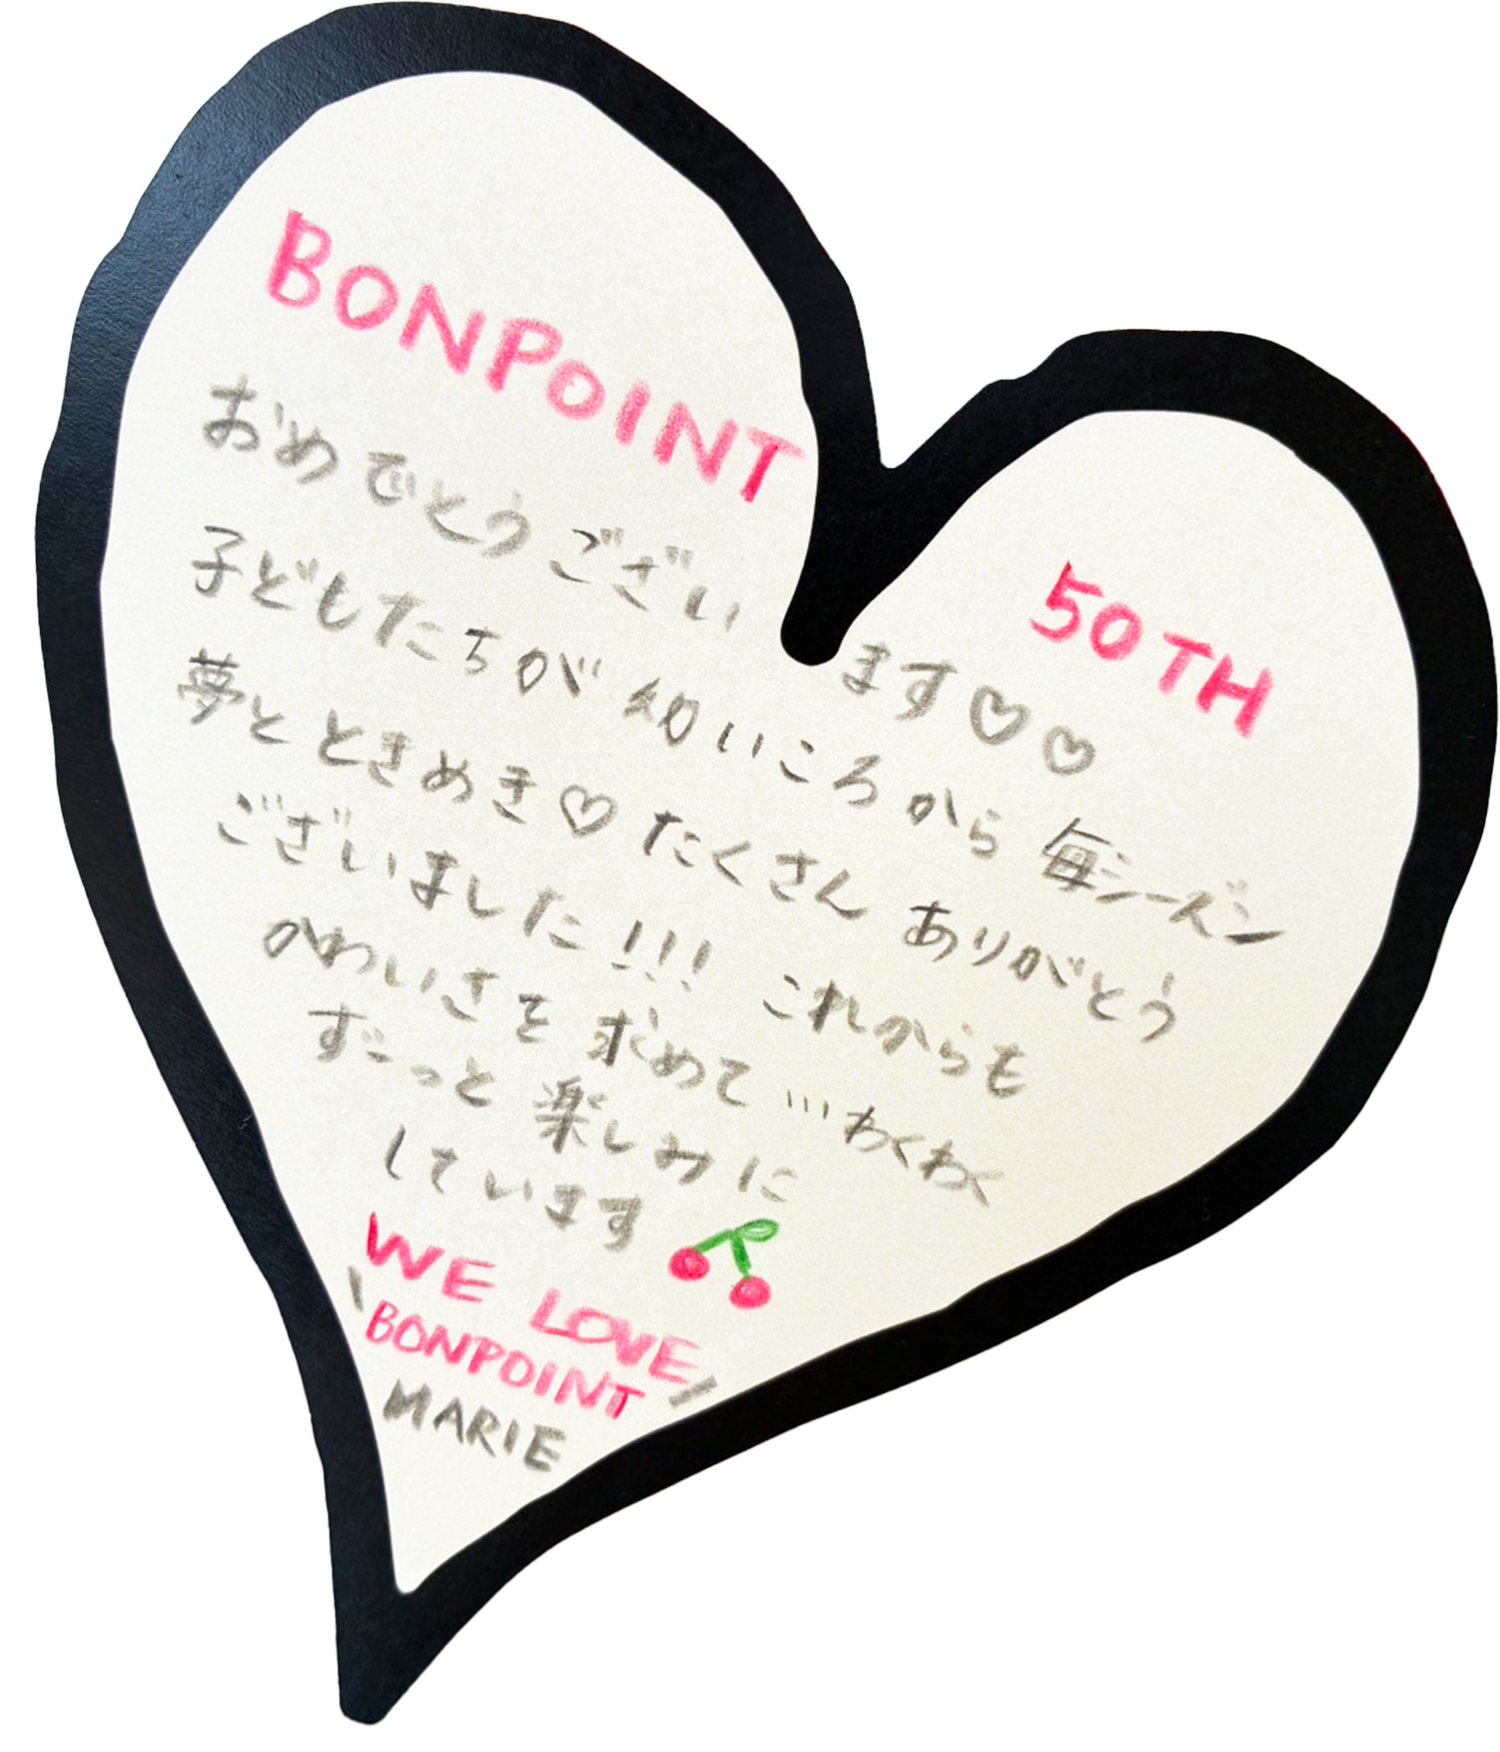 BONPOINT 50TH
おめでとうございます♡♡
子どもたちが幼いころから毎シーズン
夢とときめき♡たくさんありがとう
ございました!!! これからも
かわいさを求めて…わくわく
ずーっと楽しみに
しています
WE LOVE
\BONPOINT/
MARIE